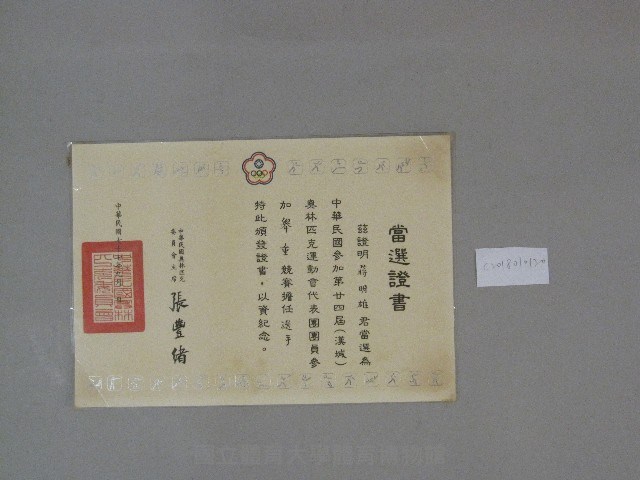 當選證書
茲證明蔣明雄君當選為
中華民國參加第廿四屆(漢城)
奧林匹克運動會代表團團員參
加舉重競賽擔任選手
特此頒發證書,以資紀念。
中華民國奧林匹克
委員會主席
張豐緒
中華民國七十
國立體育大學體育博物館